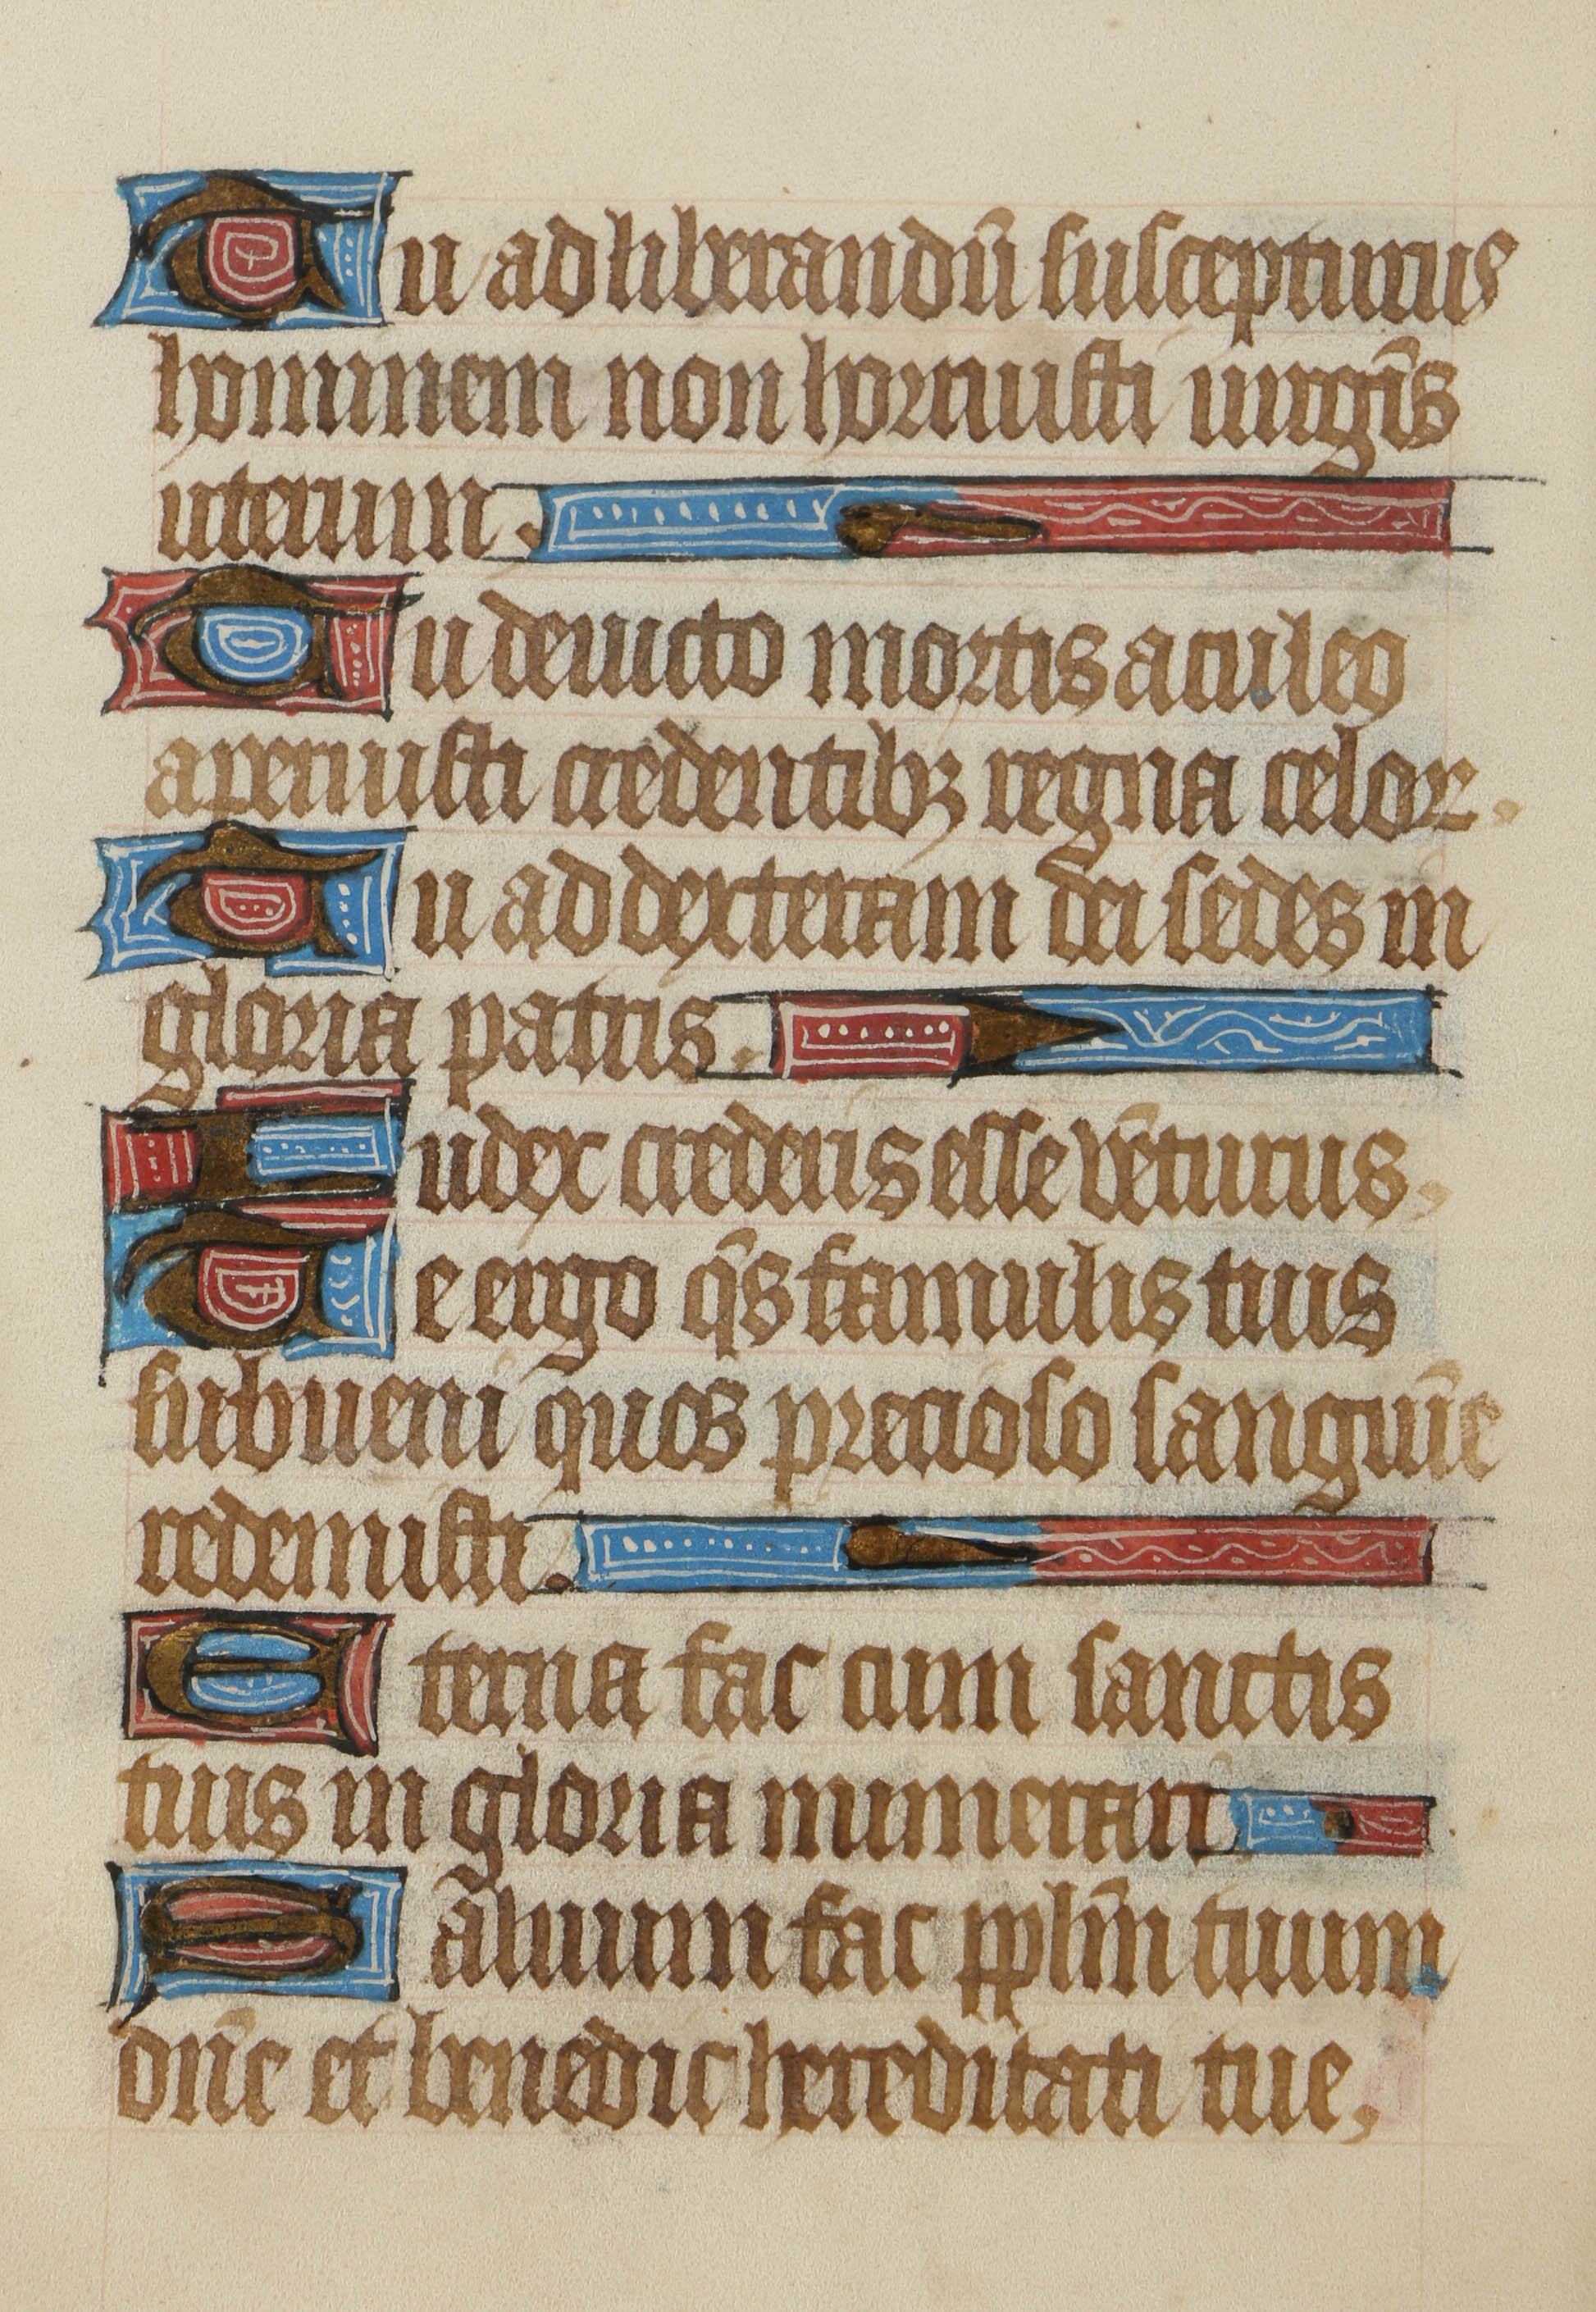 Tu ad liberandū suscepturus
hominem non horruisti uirgīs
uterum.
Tu deuicto mortis aculeo
aperuisti credentibꝫ regna celoꝝ.
Tu ad dexteram dei sedes in
gloria patris.
Iudex crederis esse vēturus.
Te ergo q̄s famulis tuis
subueni quos precioso sanguīe
redemisti.
Eterna fac cum sanctis
tuis in gloria numerari
Saluum fac pplm̄ tuum
dn̄e et benedic hereditati tue.